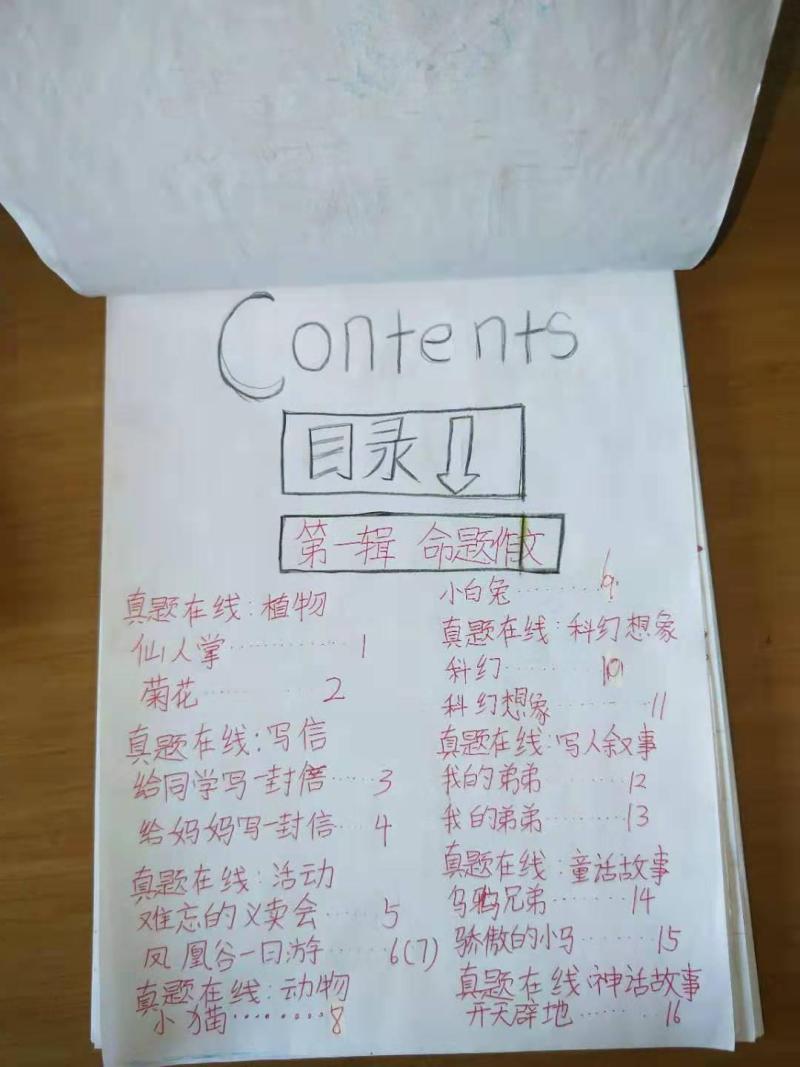 Contents
目录
第一辑 命题作文
真题在线:植物
仙人掌……1
菊花……2
真题在线:写信
给同学写一封信……3
给妈妈写一封信……4
真题在线:活动
难忘的义卖会……5
凤凰谷一日游……6(7)
真题在线:动物
小猫……8
小白兔……9
真题在线:科幻想象
科幻……10
科幻想象……11
真题在线:写人叙事
我的弟弟……12
我的弟弟……13
真题在线:童话故事
乌鸦兄弟……14
骄傲的小马……15
真题在线:神话故事
开天辟地……16